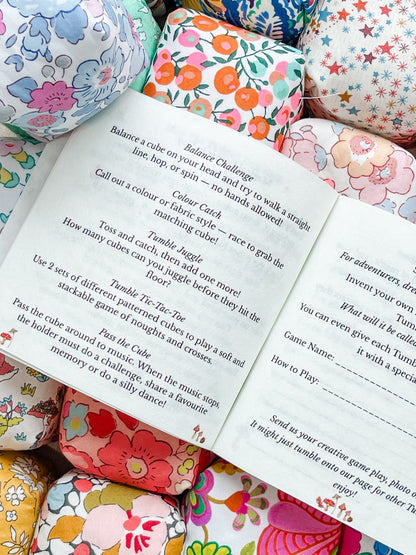 Balance Challenge
Balance a cube on your head and try to walk a straight
line, hop, or spin — no hands allowed!
Colour Catch
Call out a colour or fabric style — race to grab the
matching cube!
Tumble Juggle
Toss and catch, then add one more!
How many cubes can you juggle before they hit the
floor?
Tumble Tic-Tac-Toe
Use 2 sets of different patterned cubes to play a soft and
stackable game of noughts and crosses.
Pass the Cube
Pass the cube around to music. When the music stops,
the holder must do a challenge, share a favourite
memory or do a silly dance!
For adventurers,
Invent your own
What will it be called
You can even give each
it with a special
Game Name:
How to Play:
Send us your creative game play, photo
It might just tumble onto our page for other
enjoy!